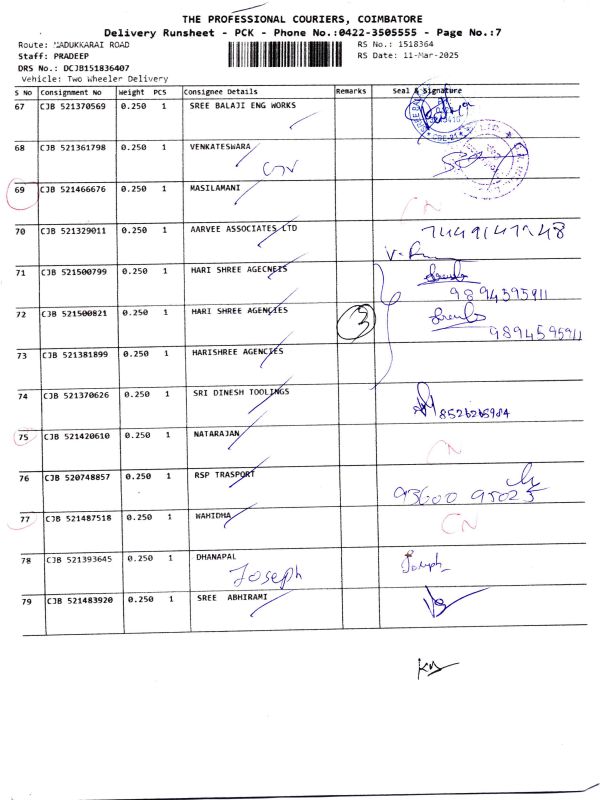 THE PROFESSIONAL COURIERS, COIMBATORE
Delivery Runsheet - PCK - Phone No.:0422-3505555 - Page No.:7
Route: MADUKKARAI ROAD RS No.: 1518364
Staff: PRADEEP RS Date: 11-Mar-2025
DRS No.: DCJB151836407
Vehicle: Two Wheeler Delivery
S No Consignment No Weight PCS Consignee Details Remarks Seal & Signature
67 CJB 521370569 0.250 1 SREE BALAJI ENG WORKS
68 CJB 521361798 0.250 1 VENKATESWARA
69 CJB 521466676 0.250 1 MASILAMANI CN
70 CJB 521329011 0.250 1 AARVEE ASSOCIATES LTD
71 CJB 521500799 0.250 1 HARI SHREE AGECNEIS
9894595911
72 CJB 521500821 0.250 1 HARI SHREE AGENCIES 3
9894595911
73 CJB 521381899 0.250 1 HARISHREE AGENCIES
74 CJB 521370626 0.250 1 SRI DINESH TOOLINGS
8526265984
75 CJB 521420610 0.250 1 NATARAJAN CN
76 CJB 520748857 0.250 1 RSP TRASPORT
93600 95025
77 CJB 521487518 0.250 1 WAHIDHA CN
78 CJB 521393645 0.250 1 DHANAPAL
Joseph Joseph
79 CJB 521483920 0.250 1 SREE ABHIRAMI